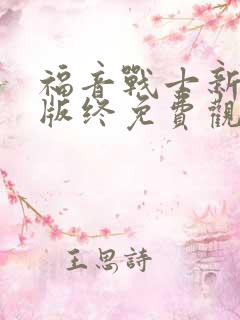 福音戰士新
版终免費觀
王思詩